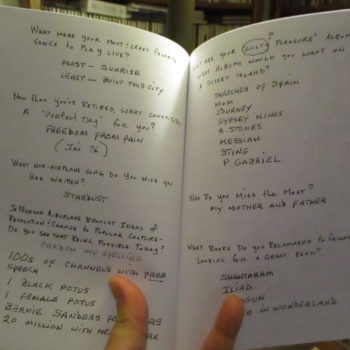 WHAT WERE YOUR MOST/LEAST FAVORITE
SONGS TO PLAY LIVE?
MOST - SUNRISE
LEAST - BUILT THIS CITY
NOW THAT YOU'RE RETIRED, WHAT CONSTITUTES
A "PERFECT DAY" FOR YOU?
FREEDOM FROM PAIN
(I'M 76)
WHAT NON-AIRPLANE SONG DO YOU WISH YOU
HAD WRITTEN?
STARDUST
JEFFERSON AIRPLANE BROUGHT IDEAS OF
REVOLUTION & CHANGE TO POPULAR CULTURE-
DO YOU SEE THAT BEING POSSIBLE TODAY?
PARDON MY SPELLING
100s OF CHANNELS WITH FREE
SPEECH
1 BLACK POTUS
1 FEMALE POTUS
BERNIE SANDERS
20 MILLION WITH
ARE YOUR "GUILTY PLEASURE" ALBUMS
WHAT ALBUMS WOULD YOU WANT ON
A DESERT ISLAND?
SKETCHES OF SPAIN
JOURNEY
GYPSEY KINGS
R. STONES
MESSIAH
STING
P. GABRIEL
DO YOU MISS THE MOST?
MY MOTHER AND FATHER
WHAT BOOKS DO YOU RECOMMEND TO FRIENDS
LOOKING FOR A GREAT READ?
SHANTARAM
ILIAD
GUN
IN WONDERLAND